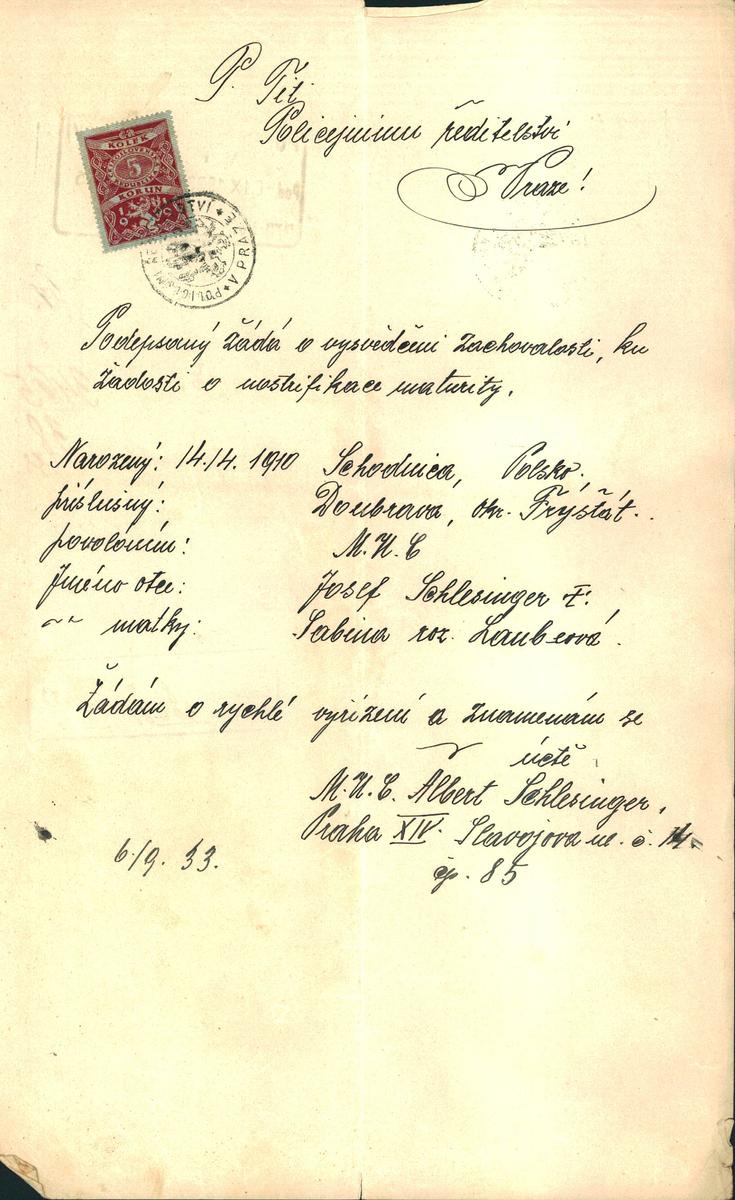 P. Tit.
Policejnímu ředitelství
Praze!
KOLEK
5
KORUN
1919
POLICEJNÍ ŘEDITELSTVÍ V PRAZE
Podepsaný žádá o vysvědčení zachovalosti, ku
žádosti o nostrifikace maturity.
Narozený: 14./4. 1910 Schodnica, Polsko.
příslušný: Doubrava, okr. Frýštát.
povoláním: M.U.C
Jméno otce: Josef Schlesinger
matky: Sabina roz.
Žádám o rychlé vyřízení a znamenám se
v úctě
M.U.C. Albert Schlesinger,
Praha XIV. Slavojova ul. č. 14
čp. 85
6/9. 33.